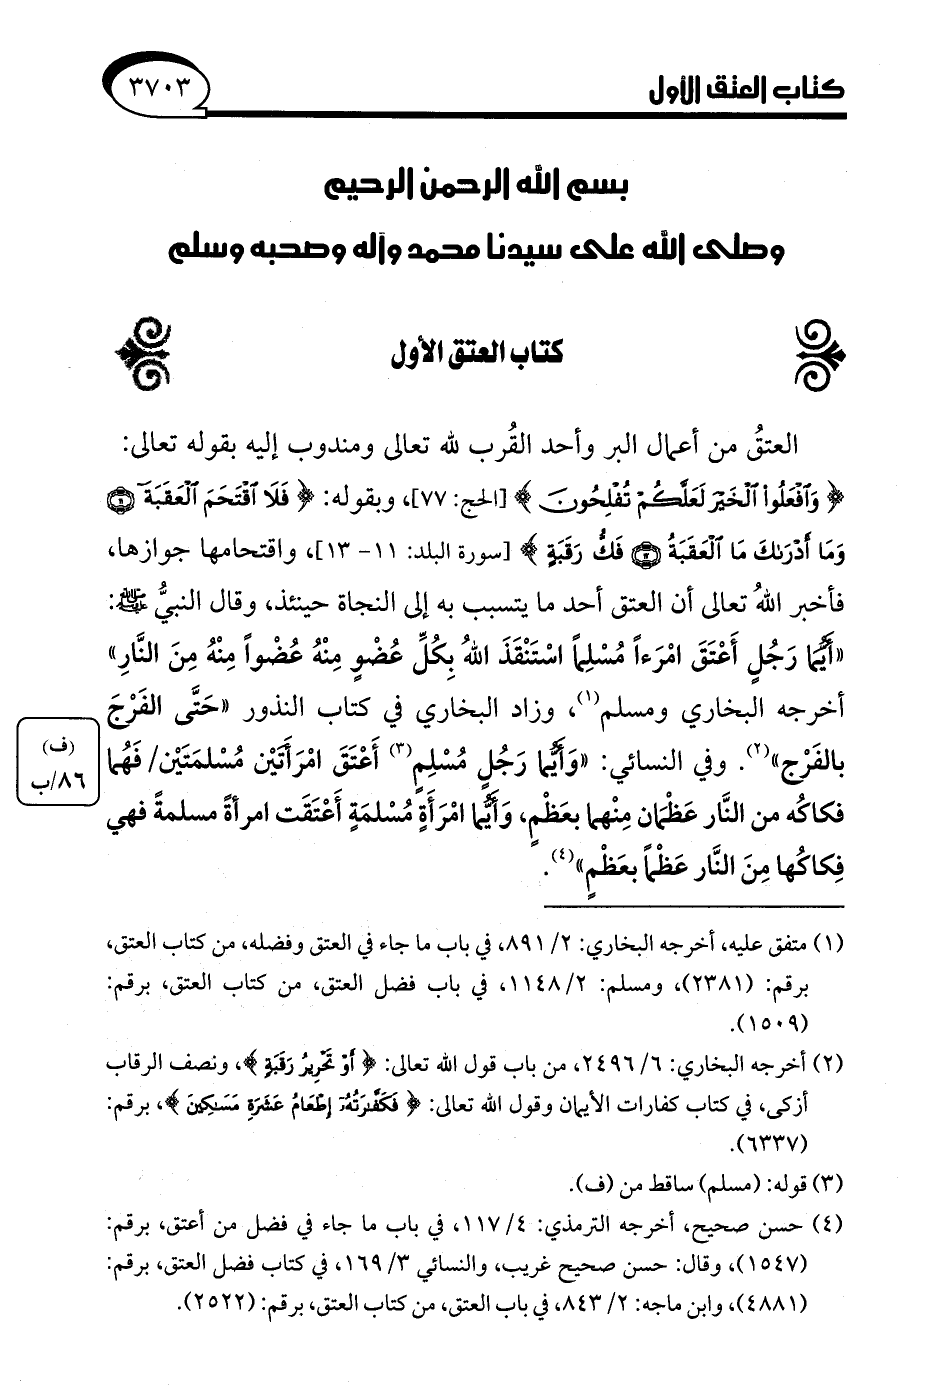 كتاب العتق الأول
٣٧٠٣
بسم الله الرحمن الرحيم
وصلى الله على سيدنا محمد وآله وصحبه وسلم
كتاب العتق الأول
العتقُ من أعمال البر وأحد القُرب لله تعالى ومندوب إليه بقوله تعالى:
﴿ وَٱفْعَلُوا۟ ٱلْخَيْرَ لَعَلَّكُمْ تُفْلِحُونَ ﴾ [الحج: ٧٧]، وبقوله: ﴿ فَلَا ٱقْتَحَمَ ٱلْعَقَبَةَ ۝١١
وَمَا أَدْرَىٰكَ مَا ٱلْعَقَبَةُ ۝١٢ فَكُّ رَقَبَةٍ ﴾ [سورة البلد: ١١- ١٣]، واقتحامها جوازها،
فأخبر اللهُ تعالى أن العتق أحد ما يتسبب به إلى النجاة حينئذ، وقال النبيُّ ﷺ:
«أَيُّمَا رَجُلٍ أَعْتَقَ امْرَءاً مُسْلِماً اسْتَنْقَذَ اللهُ بِكُلِّ عُضْوٍ مِنْهُ عُضْواً مِنْهُ مِنَ النَّارِ»
أخرجه البخاري ومسلم(١)، وزاد البخاري في كتاب النذور «حَتَّى الفَرْجَ
بالفَرْجِ»(٢). وفي النسائي: «وَأَيُّمَا رَجُلٍ مُسْلِمٍ(٣) أَعْتَقَ امْرَأَتَيْنِ مُسْلمَتَيْنِ/ فَهُما
(ف)
٨٦/ب
فكاكُه من النَّار عَظْمَان مِنْهما بعَظْمٍ، وَأَيُّمَا امْرَأَةٍ مُسْلمَةٍ أَعْتَقَت امرأةً مسلمةً فهي
فِكاكُها مِنَ النَّار عَظْماً بعَظْمٍ»(٤).
(١) متفق عليه، أخرجه البخاري: ٢/ ٨٩١، في باب ما جاء في العتق وفضله، من كتاب العتق،
برقم: (٢٣٨١)، ومسلم: ٢/ ١١٤٨، في باب فضل العتق، من كتاب العتق، برقم:
(١٥٠٩).
(٢) أخرجه البخاري: ٦/ ٢٤٩٦، من باب قول الله تعالى: ﴿ أَوْ تَحْرِيرُ رَقَبَةٍ ﴾، ونصف الرقاب
أزكى، في كتاب كفارات الأيمان وقول الله تعالى: ﴿ فَكَفَّـٰرَتُهُۥٓ إِطْعَامُ عَشَرَةِ مَسَـٰكِينَ ﴾، برقم:
(٦٣٣٧).
(٣) قوله: (مسلم) ساقط من (ف).
(٤) حسن صحيح، أخرجه الترمذي: ٤/ ١١٧، في باب ما جاء في فضل من أعتق، برقم:
(١٥٤٧)، وقال: حسن صحيح غريب، والنسائي ٣/ ١٦٩، في كتاب فضل العتق، برقم:
(٤٨٨١)، وابن ماجه: ٢/ ٨٤٣، في باب العتق، من كتاب العتق، برقم: (٢٥٢٢).